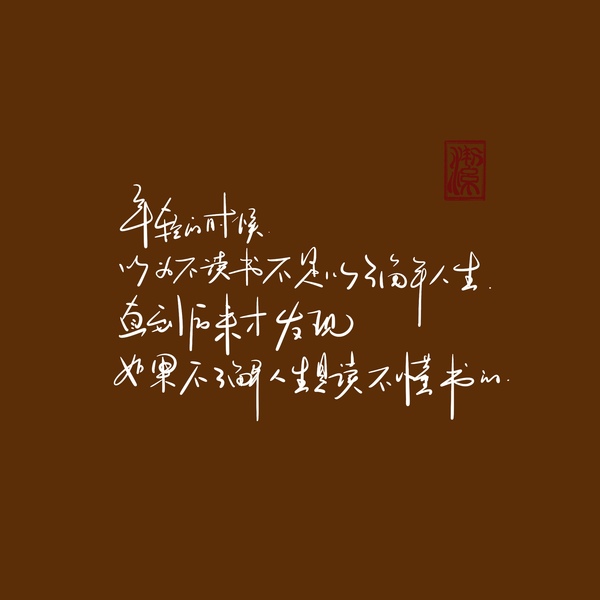 年轻的时候.
以为不读书不足以了解人生.
直到后来才发现
如果不了解人生是读不懂书的.